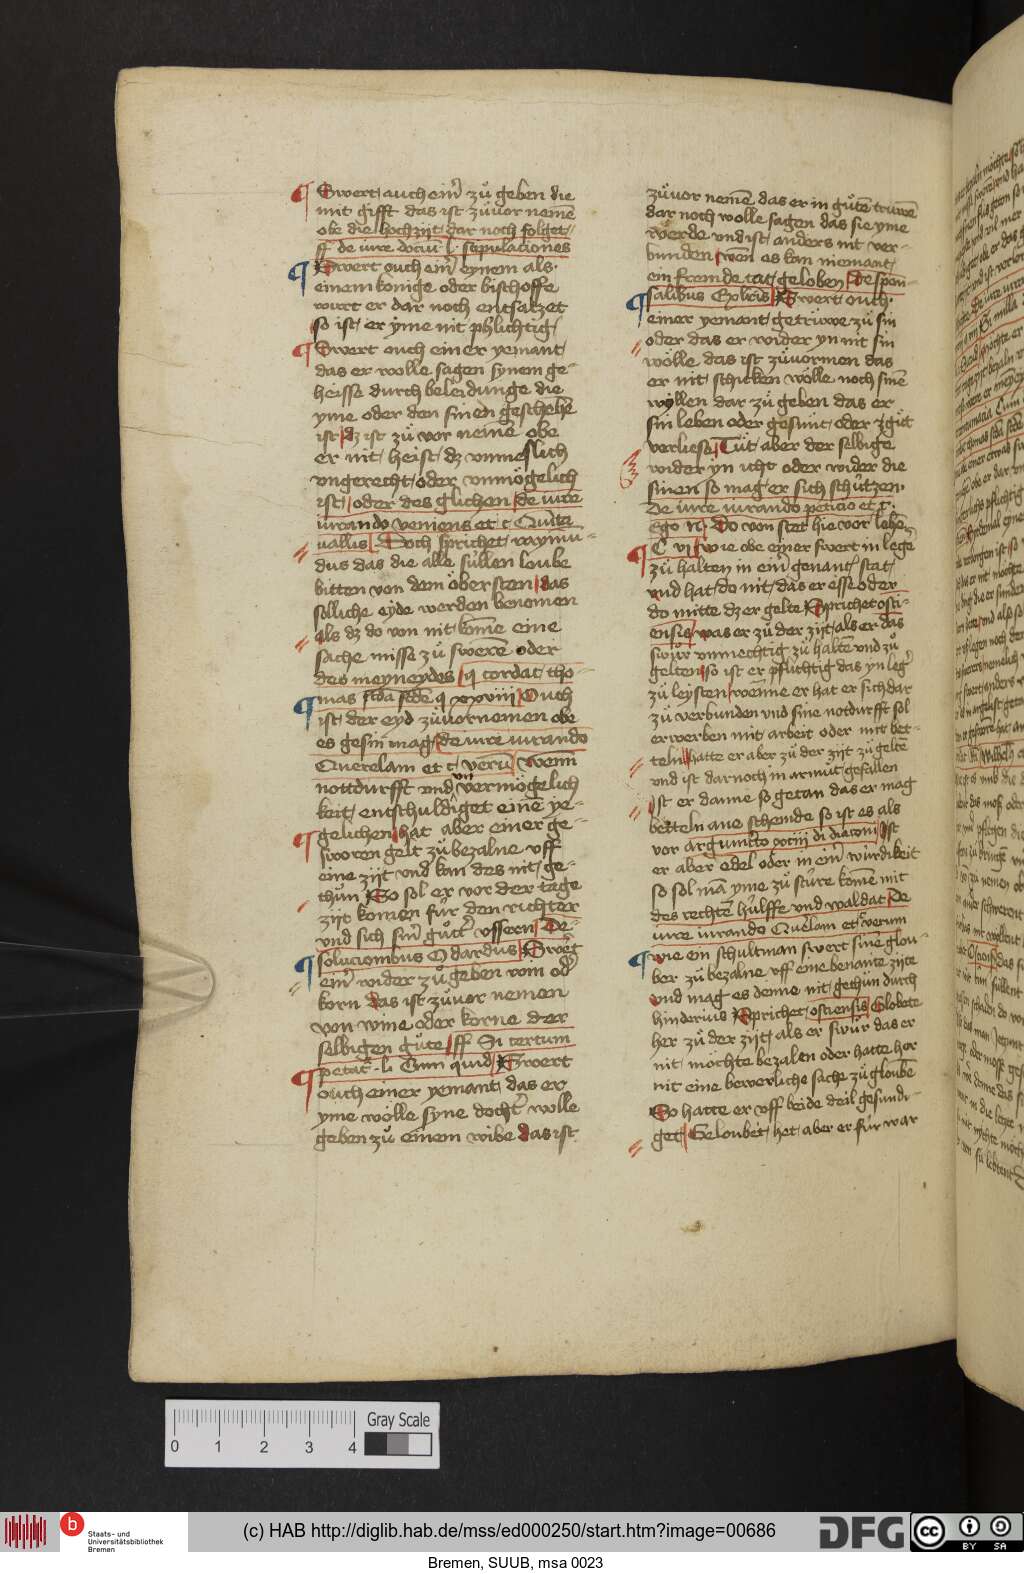 Swert auch eim̄ zů geben die
mit gifft das ist zůvor neme
obe die hochzijt dar noch folget
ff de iure dociū l. stipulationes
Swert ouch eim̄ eynem als
einem konige oder bischoffe
wurt er dar noch entsatzet
so ist er yme nit phlichtig
Swert ouch einer yemant
das er wolle sagen synem ge-
heisse durch beleidunge die
yme oder den sinen geschehē
ist dz ist zů vor neme obe
er nit heist dz vnmeslich
vngerecht oder vnmögelich
ist oder des glichen de iure
iurando veniens et c Quīta
uallis Doch sprichet raymū-
dus das die alle süllen loube
bitten von dem öbersten das
solliche eyde werden benomen
als dz do von nit kōme eine
sache misse zů swerē oder
des meyneydes q̄ cordat tho-
mas scda scdē q xxxviij Ouch
ist der eyd zůvornemen obe
es gesin mag de iure iurando
Querelam et c verū wenn
nottdurfft vnd vn vermögelich
keit entschuldiget eine ye-
gelichen hat aber einer ge-
sworen gelt zů bezalne vff
eine zijt vnd kan des nit ge-
thůn So sol er vor der tage
zijt komen für den richter
vnd sich sin̄ gůtt̄ vssern De
solucionibus Odardus Swerg
eim̄ wider zů geben vom od̄
korn das ist zůvor nemen
von wine oder korne der
selbigen gůte ff Si certum
petat̄ li Cum quid Swert
ouch einer yemant das er
yme wölle syne docht̄ wölle
geben zů einem wibe das ist
zůvor nemē das er in gůtē truwē
dar noch wolle sagen das sie yme
werde vnd ist anders nit ver-
bunden wen es kan niemant
ein fremde tat geloben de spon-
salibus Ex lītris Swert ouch
einer yemant getrüwe zů sin
oder das er wider yn nit sin
wölle das ist zůvornen das
er nit schicken wölle noch sinē
wyllen dar zů geben das er
sin leben oder gesunt oder zgůt
verliese Tůt aber der selbige
wider yn icht oder wider die
sinen so mag er sich schützen
De iure iurando peticio et c
Ego n̄ Do von stet hie vor lehē
C vj wie obe einer swert in legē
zů halten in eim̄ genant stat
vnd hat do nit das er esse oder
do mitte dz er gelte Sprichet osti-
ensis was er zů der zijt als er das
swůr vnmechtig zů haltē vnd zů
gelten so ist er pflichtig das yn leḡ
zů leysten wenne er hat er sich dar
zů verbunden vnd sine notdurfft sol
erwerben mit arbeit oder mit bet-
teln hatte er aber zů der zijt zů geltē
vnd ist dar noch in armut gefallen
Ist er danne so getan das er mag
betteln ane schemde so ist es als
vor argum̄to xciij di diaconi Ist
er aber edel oder in eim̄ würdikeit
so sol mā yme zů stüre komē mit
des rechtē hülffe vnd waldat De
iure iurando Querlam et c verum
wie ein schultman swert sine glou-
ber zů bezalne vff eine benante zijte
vnd mag es denne nit gethůn durch
hinderius Sprichet ostiensis Globete
her zů der zijt als er swůr das er
nit möchte bezalen oder hatte her
nit eine bewerliche sache zů gloubē
So hatte er vff beide deil gesundi-
get Geloubet het aber er für war
0 1 2 3 4
Gray Scale
b
Staats- und
Universitätsbibliothek
Bremen
(c) HAB http://diglib.hab.de/mss/ed000250/start.htm?image=00686
DFG
cc BY SA
Bremen, SUUB, msa 0023